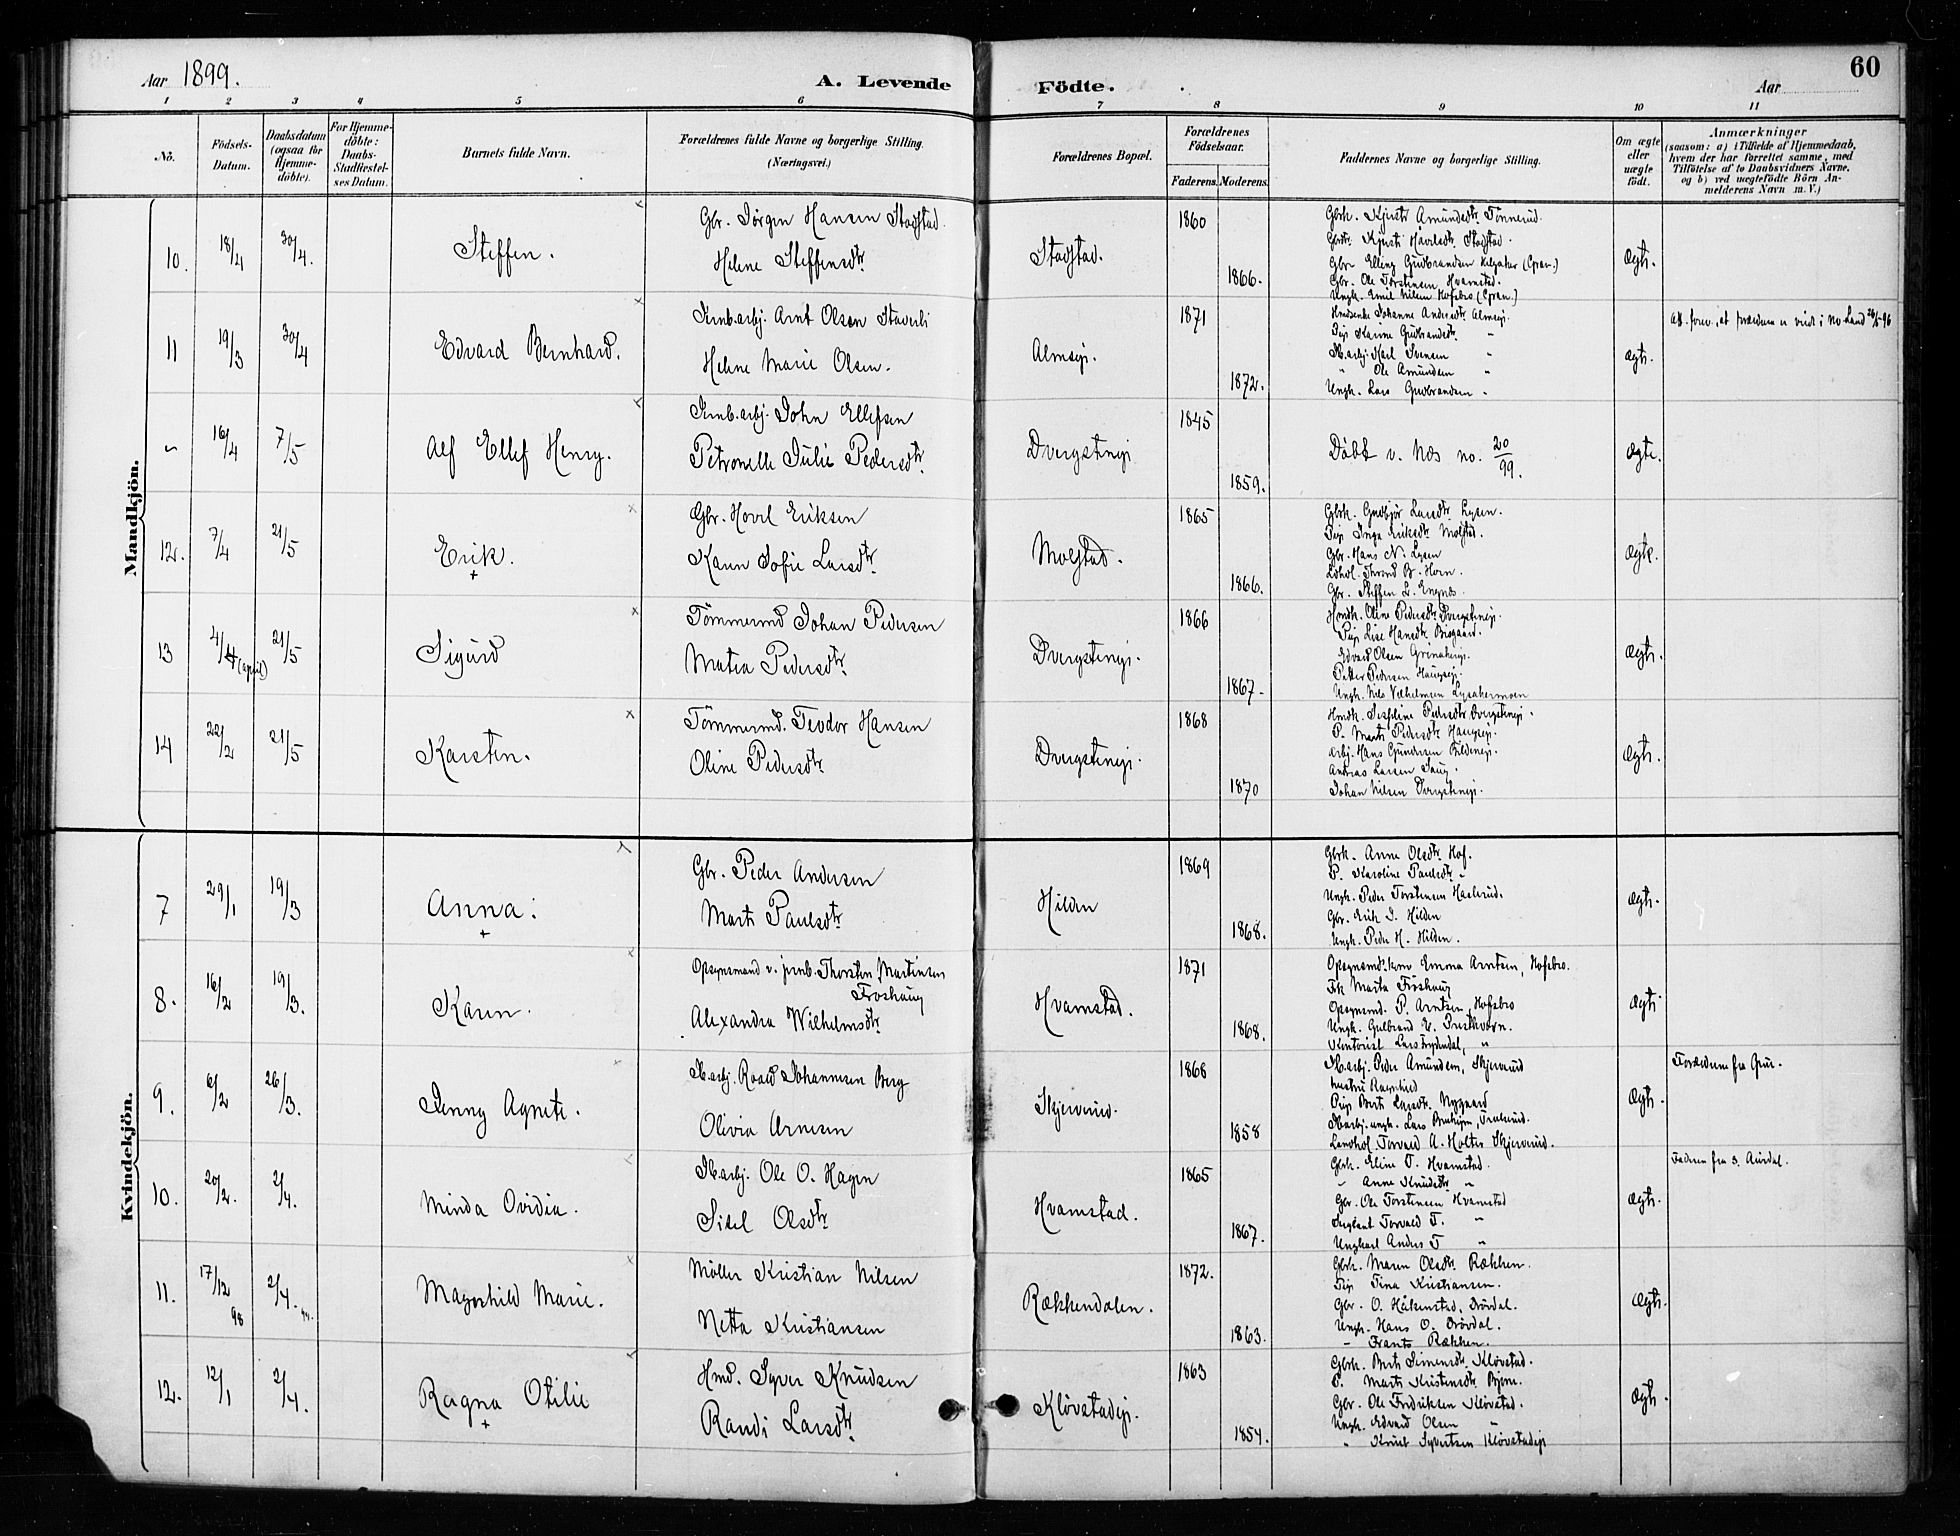 Aar 1899. A. Levende Födte. Aar 60
1 2 3 4 5 6 7 8 9 10 11
No. Födsels-Datum. Daabsdatum (ogsaa för Hjemme-döbte). For Hjemme-döbte: Daabs-Stadfæstel-ses Datum. Barnets fulde Navn. Forældrenes fulde Navne og borgerlige Stilling. (Næringsvei.) Forældrenes Bopæl. Forældrenes Födselsaar. Faderens. Moderens. Faddernes Navne og borgerlige Stilling. Om ægte eller uægte födt. Anmærkninger (saasom: a) i Tilfælde af Hjemmedaab, hvem der har forrettet samme, med Tilföielse af to Daabsvidners Navne, og b) ved uægtefödte Börn An-melderens Navn m. V.)
Mandkjön.
10. 18/4 30/4. Steffen. Gbr. Jörgen Hansen Stadstad.
Helene Steffensdtr. Stadstad. 1860 1866. Ægte.
Gbrk. Kjersti Amundsdtr. Tönnerud.
Gbrdtr. Kjersti Haavelsdtr. Stadstad.
Gbr. Elling Gudbrandsen (Gran.)
Gbr. Ole Torstensen Hvamstad.
Ungk. Emil Nilsen Hofsbro (Gran.)
11 19/3 30/4 Edvard Bernhard. Jernb.arbj. Arnt Olsen Staverli
Helene Marie Olsen. Almsej. 1871 1872. ægte.
Johanne Andersdtr. Almsej.
Pige Karine Gudbrandsdtr. "
Karl Svensen "
" Ole Amundsen "
Ungk. Lars Gudbrandsen "
Att. forev., at forældrene er viede i No. Land 26/5-96
" 16/4 7/5 Alf Ellef Henry. Jernb.arbj. John Ellefsen
Petronelle Julie Pedersdtr. Dvergstenej 1845 1859. Döbt v. Næs no. 20/99. Ægte.
12. 7/4 21/5 Erik. + Gbr. Hovel Eriksen
Karen Sofie Larsdtr. Molstad. 1865 1866. Ægte.
Gbrk. Gudbjör Larsdtr. Lysen.
Pige Inga Eriksdtr. Molstad.
Gbr. Hans N. Lysen
Ldhdl. Thrond B. Horn.
Gbr. Steffen L. Engnæs.
13 4/4 (april) 21/5 Sigurd Tömmermd Johan Pedersen
Matea Pedersdtr. Dvergstenej. 1866 1867. Ægte.
Hmdk. Oline Pedersdtr. Dvergstenej.
Pige Lise Hansdtr. Bregaard.
Edvard Olsen
Petter Pedersen Haugsej.
Ungk. Nils Vilhelmsen Lysakermoen
14 22/2 21/5 Karsten. Tömmermd. Teodor Hansen
Oline Pedersdtr. Dvergstenej. 1868 1870 Ægte.
Hmdk. Josefine Pedersdtr. Dvergstenej.
P. Marte Pedersdtr. Haugsej.
Arbj. Hans Gundersen
Andreas Larsen Haug.
Johan Nilsen Dvergstenej.
Kvindekjön.
7 29/1 19/3 Anna. + Gbr. Peder Andersen
Marte Paulsdtr Hilden 1869 1868. Ægte.
Gbrk. Anne Olsdtr. Hof.
P. Karoline Paulsdtr. "
Ungk. Peder Torstensen Haslerud.
Gbr. Erik J. Hilden
Ungk. Peder H. Hilden.
8. 16/2 19/3. Karen. Opsynsmand v. jernb. Thorsten Martinsen
Froshaug
Alexandra Wilhelmsdtr. Hvamstad. 1871 1868. Ægte
Opsynsmd. kone Emma Arntsen, Hofsbro.
Frk Marta Fröshaug
Opsynsmd. P. Arntsen, Hofsbro
Ungk. Gulbrand E. Præstkvern.
Kontorist Lars Frydendal, "
9. 6/2 26/3. Jenny Agnete. Roald Johannesen Berg
Olivia Arnesen Skjerverud. 1868 1858 Ægte.
Peder Amundsen, Skjerverud
hustru Ragnhild
Pige Berte Larsdtr. Nygaard
Landhdl. Torvald A. Holter Skjerverud.
Forældrene fra Grue.
10. 20/2. 2/4. Minda Ovidia. Ole O. Hagen
Sidsel Olsdtr. Hvamstad. 1865 1867. Ægte.
Gbrk. Eline T. Hvamstad.
" Anne Knudsdtr. "
Gbr. Ole Torstensen Hvamstad
Torvald T. "
Ungkarl Anders T. "
Faderen fra S. Aurdal.
11. 17/12 98 2/4. 99. Magnhild Marie. Möller Kristian Nilsen
Netta Kristiansen Rækkendalen. 1872. 1863. Ægte.
Gbrk. Maren Olsdtr. Rækken.
Pige Tina Kristiansen.
Gbr. O. Haakenstad, Drövdal.
Ungk. Hans O. Drövdal.
" Frants Rækken.
12. 12/1 2/4. Ragna Otilie + Hmd. Syver Knudsen
Randi Larsdtr. Klövstadej. 1863 1854. Ægte.
Gbrk. Berte Simensdtr. Klövstad.
P. Marte Kristensdtr. Bjerne.
Gbr. Ole Fredriksen Klövstad.
Ungk. Edvard Olsen "
" Knut Syvertsen Klövstadej